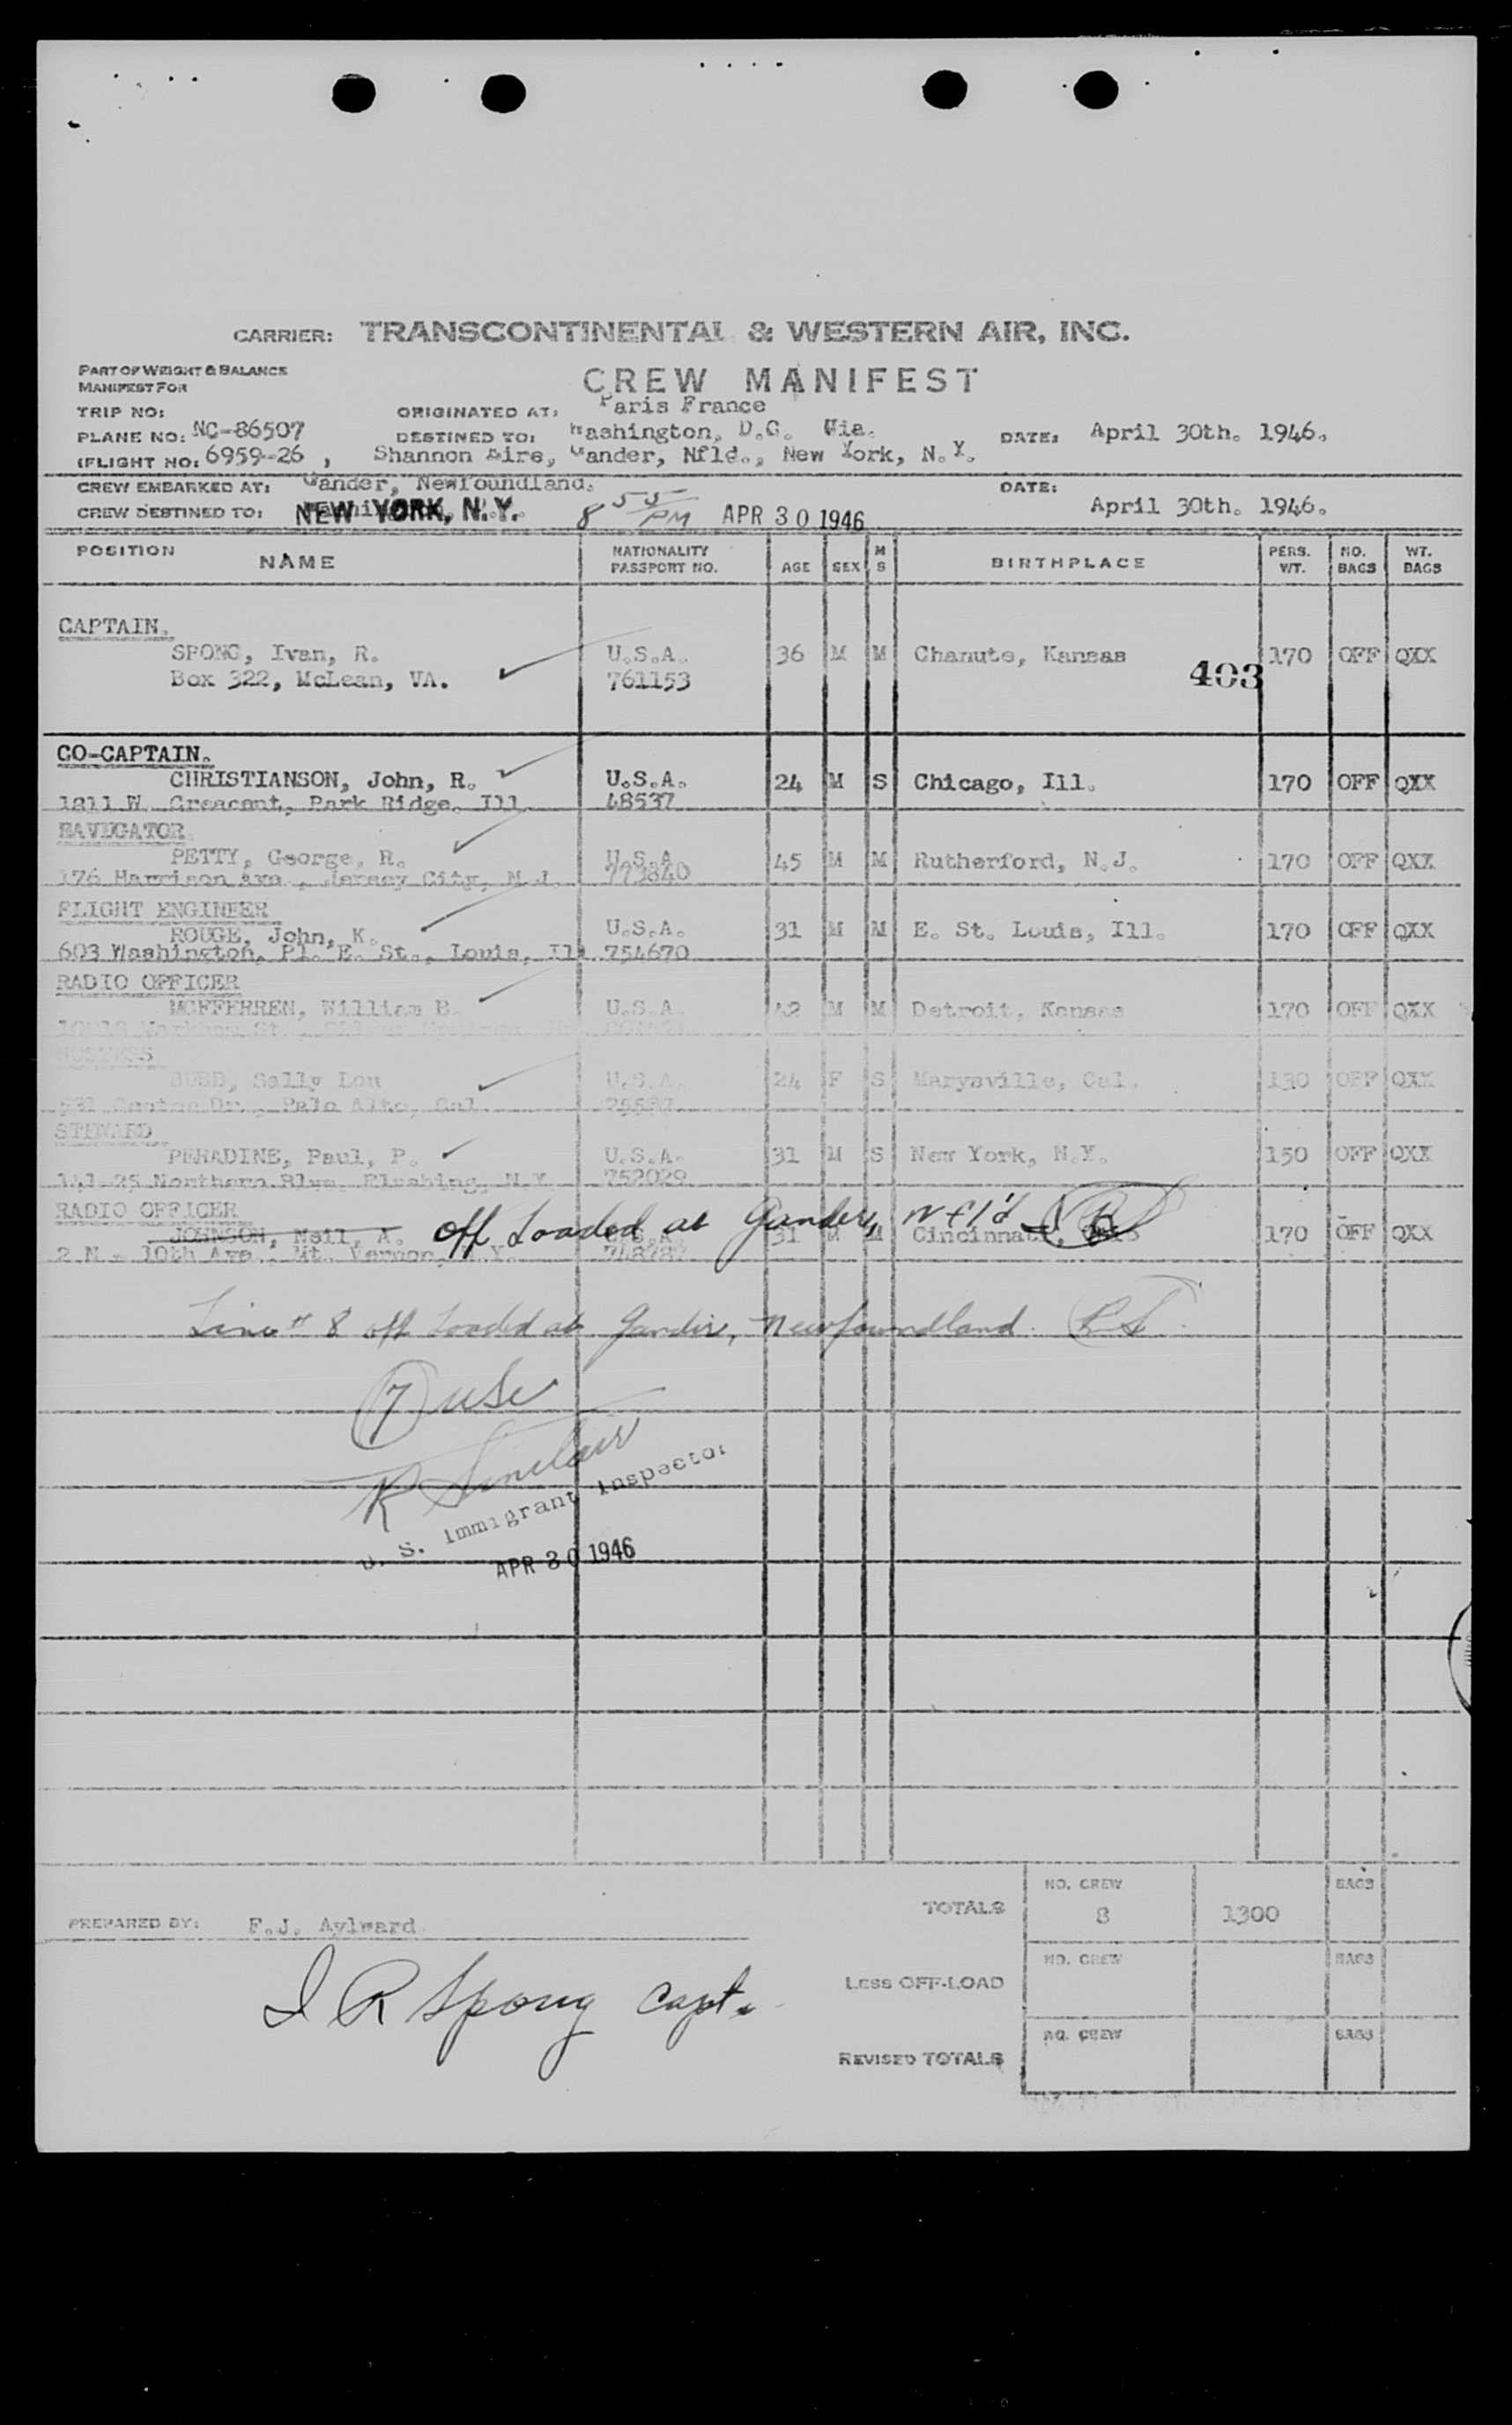 CARRIER: TRANSCONTINENTAL & WESTERN AIR, INC.
PART OF WEIGHT & BALANCE
MANIFEST FOR
CREW MANIFEST
TRIP NO: ORIGINATED AT: Paris France
PLANE NO: NC-86507 DESTINED TO: Washington, D.C. Via. DATE: April 30th. 1946.
(FLIGHT NO: 6959-26 , Shannon Eire, Gander, Nfld., New York, N.Y.
CREW EMBARKED AT: Gander, Newfoundland. DATE:
CREW DESTINED TO: NEW YORK, N.Y. 8 55 PM APR 30 1946 April 30th. 1946.
POSITION NAME NATIONALITY PASSPORT NO. AGE SEX M S BIRTHPLACE PERS. WT. NO. BAGS WT. BAGS
CAPTAIN.
SPONG, Ivan, R. U.S.A. 36 M M Chanute, Kansas 170 OFF QXX
Box 322, McLean, VA. 761153 403
CO-CAPTAIN.
CHRISTIANSON, John, R. U.S.A. 24 M S Chicago, Ill. 170 OFF QXX
1811 W. Crescent, Park Ridge, Ill 48537
NAVIGATOR
PETTY, George, R. U.S.A. 45 M M Rutherford, N.J. 170 OFF QXX
176 Harrison Ave., Jersey City, N.J. 773840
FLIGHT ENGINEER
ROUGE, John, K. U.S.A. 31 M M E. St. Louis, Ill. 170 OFF QXX
603 Washington, Pl. E. St., Louis, Ill 754670
RADIO OFFICER
MCFFERREN, William B. U.S.A. 42 M M Detroit, Kansas 170 OFF QXX
HOSTESS
BUBB, Sally Lou U.S.A. 24 F S Marysville, Cal. 130 OFF QXX
Dr., Palo Alto, Cal
STEWARD
PERADINE, Paul, P. U.S.A. 31 M S New York, N.Y. 150 OFF QXX
141-25 Northern Blvd. Flushing, N.Y 752029
RADIO OFFICER
JOHNSON, Neil, A. off Loaded at Gander, Nf'l'd 31 M M Cincinnati, 170 OFF QXX
2 N - 10th Ave., Mt. Vernon, N.Y.
Line # 8 off Loaded at Gander, Newfoundland. RS
7 usc
R Sinclair
U. S. Immigrant Inspector
APR 30 1946
TOTALS NO. CREW 8 1300 BAGS
PREPARED BY: F.J. Aylward
LESS OFF-LOAD NO. CREW BAGS
I R Spong Capt.
REVISED TOTALS NO. CREW BAGS